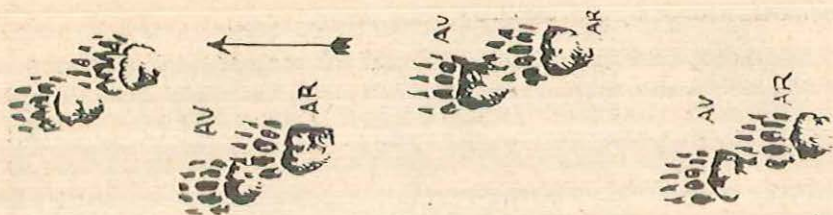 AV
AR
AV
AR
AV
AR